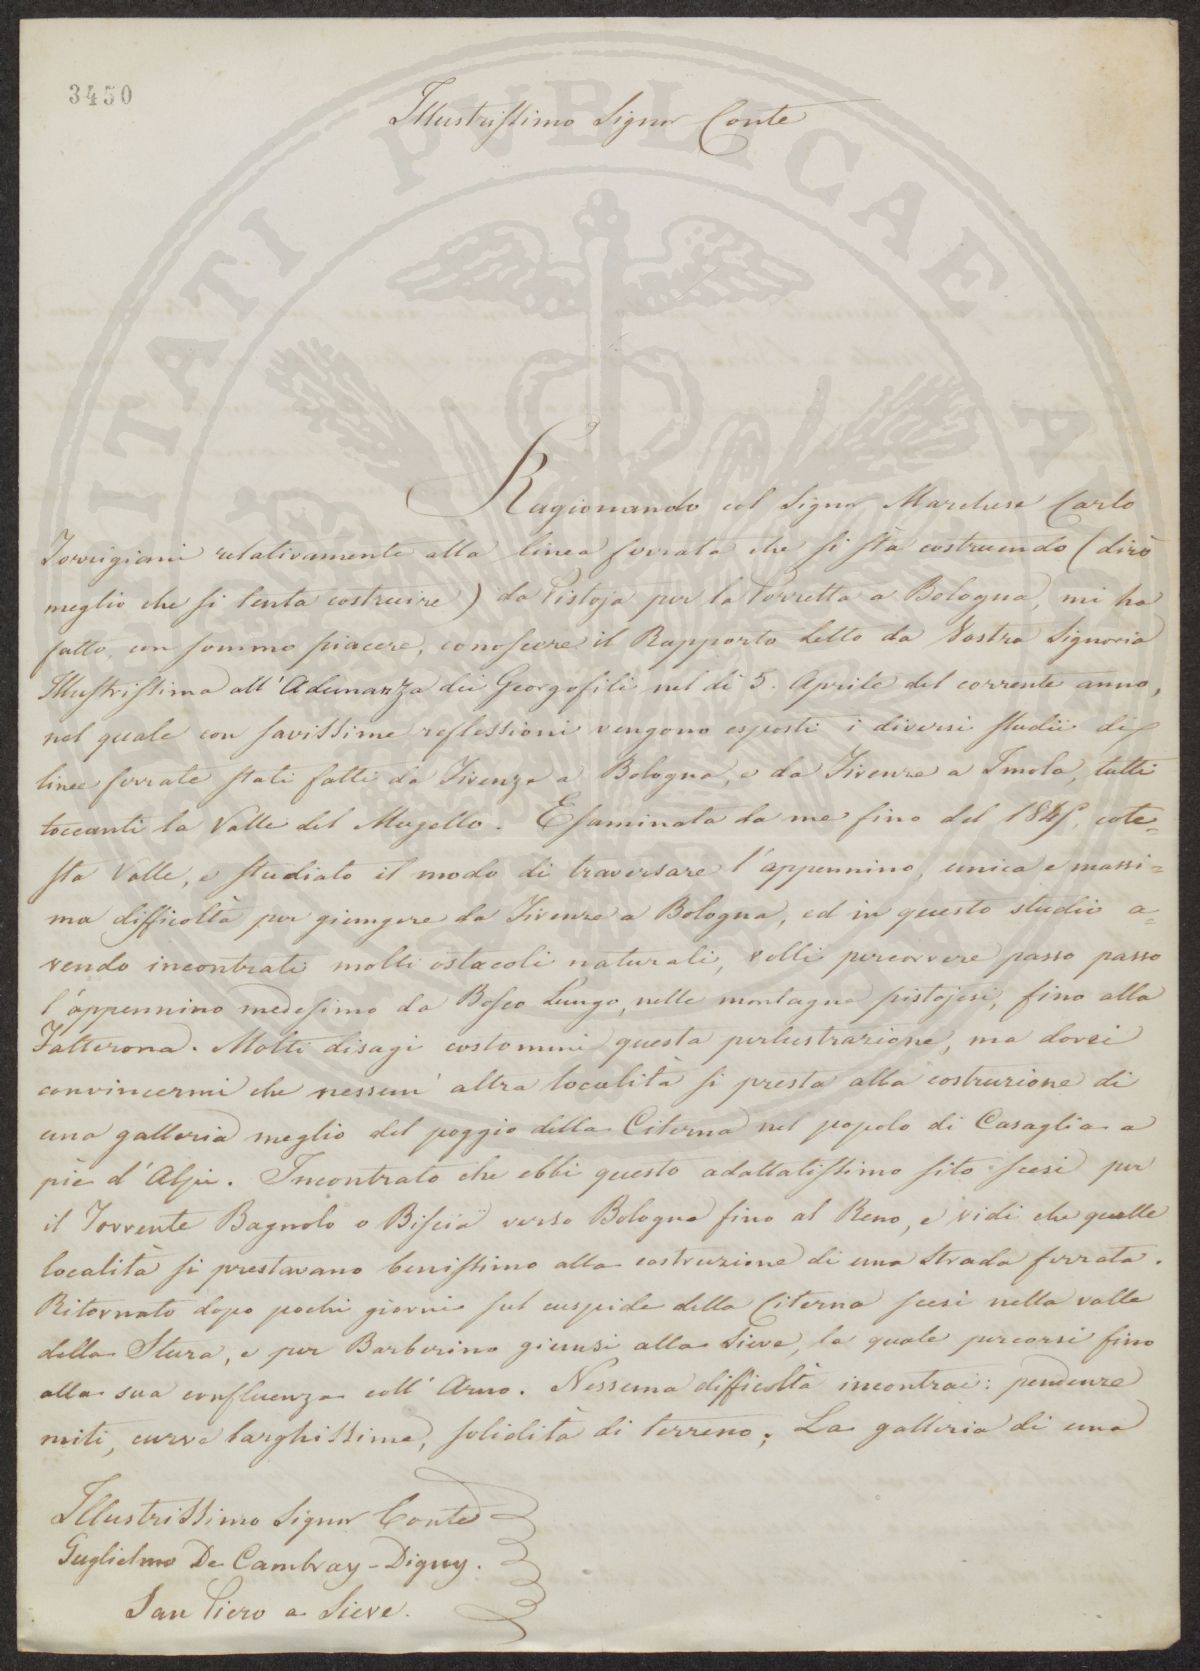 3450
Illustrissimo Signor Conte
Ragionando col Signor Marchese Carlo
Torrigiani relativamente alla linea ferrata che si stà costruendo (dirò
meglio che si tenta costruire) da Pistoja per la Porretta a Bologna, mi ha
fatto, con sommo piacere, conoscere il Rapporto Letto da Vostra Signoria
Illustrissima all'Adunanza dei Georgofili nel dì 5. Aprile del corrente anno,
nel quale con savissime reflessioni vengono esposti i diversi studii di
linee ferrate stati fatti da Firenze a Bologna, e da Firenze a Imola, tutti
toccanti la Valle del Mugello. Esaminata da me fino del cote=
sta Valle, e studiato il modo di traversare l'appennino, unica e massi=
ma difficoltà per giungere da Firenze a Bologna, ed in questo studio a=
vendo incontrati molti ostacoli naturali, volli percorrere passo passo
l'appennino medesimo da Bosco Lungo, nelle montagne pistojesi, fino alla
Falterona. Molti disagi costommi questa perlustrazione, ma dovei
convincermi che nessun'altra località si presta alla costruzione di
una galleria meglio del poggio della Citerna nel popolo di Casaglia a
piè d'Alpi. Incontrato che ebbi questo adattatissimo sito scesi per
il Torrente Bagnolo o Biscia verso Bologna fino al Reno, e vidi che quelle
località si prestavano benissimo alla costruzione di una Strada ferrata.
Ritornato dopo pochi giorni sul cuspide della Citerna scesi nella valle
della Stura, e per Barberino giunsi alla Sieve, la quale percorsi fino
alla sua confluenza coll'Arno. Nessuna difficoltà incontrai: pendenze
miti, curve larghissime, solidità di terreno. La galleria di una
Illustrissimo Signor Conte
Guglielmo De Cambray-Digny.
San Piero a Sieve.